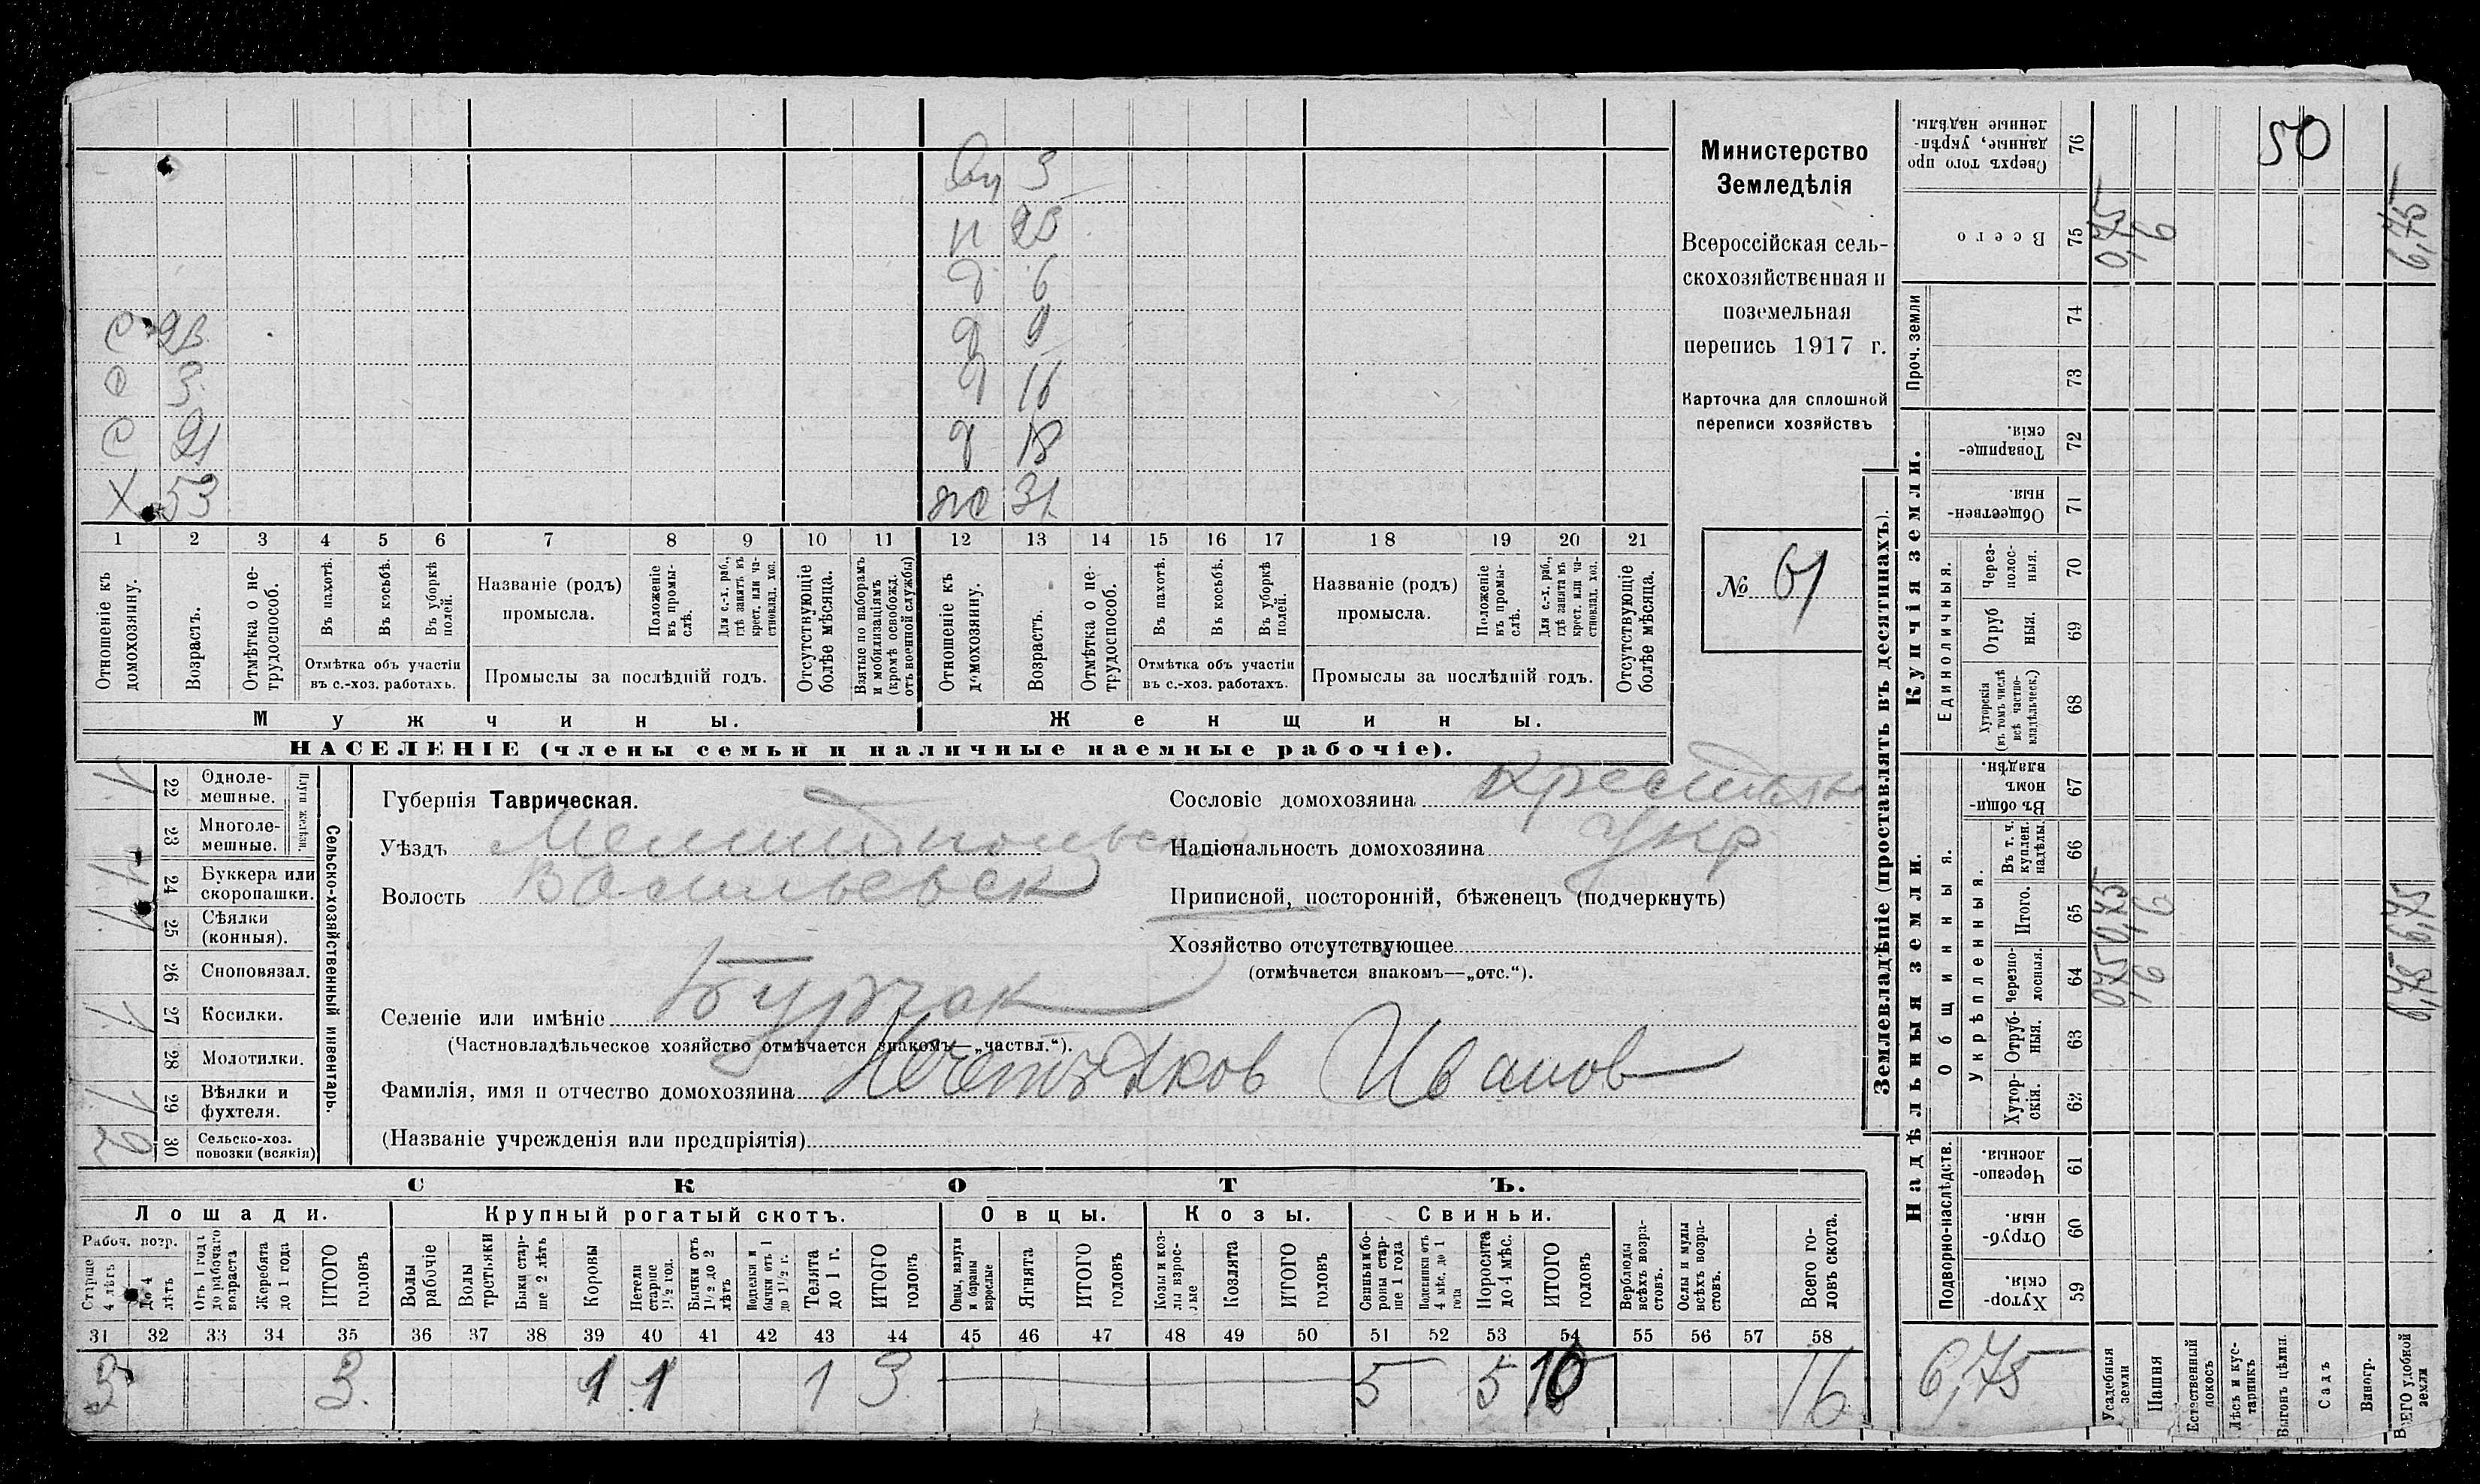 Министерство
Земледѣлія
Всероссійская сель-
скохозяйственная и
поземельная
перепись 1917 г.
Карточка для сплошной
переписи хозяйствъ
№ 61
вн 3
н 23
д 6
д 9
с 23
с 3
д 16
с 21
д 18
Х 53
ж 31
1 2 3 4 5 6 7 8 9 10 11 12 13 14 15 16 17 18 19 20 21
Отношеніе къ домохозяину.
Возрастъ.
Отмѣтка о не-трудоспособ.
Въ пахотѣ.
Въ косьбѣ.
Въ уборкѣ полей.
Отмѣтка объ участіи
въ с.-хоз. работахъ.
Названіе (родъ)
промысла.
Положеніе въ промы-слѣ.
Для с.-х. раб., гдѣ занятъ въ крест. или ча-стновлад. хоз.
Промыслы за послѣдній годъ.
Отсутствующіе болѣе мѣсяца.
Взятые по наборамъ и мобилизаціямъ (кромѣ освобожд. отъ военной службы)
Отношеніе къ домохозяину.
Возрастъ.
Отмѣтка о не-трудоспособ.
Въ пахотѣ.
Въ косьбѣ.
Въ уборкѣ полей.
Отмѣтка объ участіи
въ с.-хоз. работахъ.
Названіе (родъ)
промысла.
Положеніе въ промы-слѣ.
Для с.-х. раб., гдѣ занятъ въ крест. или ча-стновлад. хоз.
Промыслы за послѣдній годъ.
Отсутствующіе болѣе мѣсяца.
Мужчины. Женщины.
НАСЕЛЕНІЕ (члены семьи и наличные наемные рабочіе).
Сельско-хозяйственный инвентарь.
Плуги желѣзн.
1 22 Одноле-мешные.
23 Многоле-мешные.
1 24 Буккера или скоропашки.
1 25 Сѣялки (конныя).
26 Сноповязал.
1 27 Косилки.
28 Молотилки.
1 29 Вѣялки и фухтеля.
2 30 Сельско-хоз. повозки (всякія)
Губернія Таврическая.
Уѣздъ Мелитопольск
Волость Васильевск
Сословіе домохозяина Крестьян
Національность домохозяина Укр
Приписной, посторонній, бѣженец (подчеркнуть)
Хозяйство отсутствующее
(отмѣчается знакомъ—„отс.“).
Селеніе или имѣніе Бурчак
(Частновладѣльческое хозяйство отмѣчается знакомъ—„частвл.“).
Фамилія, имя и отчество домохозяина Иванов
(Названіе учрежденія или предпріятія)
СКОТЪ.
Лошади. Крупный рогатый скотъ. Овцы. Козы. Свиньи.
Рабоч. возр.
Старше 4 лѣтъ
До 4 лѣтъ
Отъ 1 года до рабочаго возраста
Жеребята до 1 года
ИТОГО головъ
Волы рабочіе
Волы третьяки
Быки стар-ше 2 лѣтъ
Коровы
Нетели старше 1½ год.
Бычки отъ 1½ до 2 лѣтъ
Подтелки и бычки отъ 1 до 1½ г.
Телята до 1 г.
ИТОГО головъ
Овцы, валухи и бараны взрослые
Ягнята
ИТОГО головъ
Козы и коз-лы взрос-лые
Козлята
ИТОГО головъ
Свиньи и бо-ровы стар-ше 1 года
Подсвинки отъ 4 мѣс. до 1 года
Поросята до 4 мѣс.
ИТОГО головъ
Верблюды всѣхъ возра-стовъ.
Ослы и мулы всѣхъ возра-стовъ.
Всего го-ловъ скота.
31 32 33 34 35 36 37 38 39 40 41 42 43 44 45 46 47 48 49 50 51 52 53 54 55 56 57 58
3 3 1 1 1 3 5 5 10 16
Землевладѣніе (проставлять въ десятинахъ).
Купчія земли.
Надѣльныя земли.
Сверхъ того про данные, укрѣп-ленные надѣлы. 76 50
Всего 75 0,75 6 6,75
Проч. земли 74
73
Товарище-скія. 72
Обществен-ныя. 71
Единоличныя.
Через-полос-ныя. 70
Отруб ныя. 69
Хуторскія (въ томъ числѣ всѣ частно-владѣльческ.) 68
Въ общи-номъ владѣн. 67
Общинныя.
Укрѣпленныя.
Въ т. ч. куплен. надѣлы. 66
Итого. 65 0,75 6 6,75
Черезпо-лосныя. 64 0,75 6 6,75
Отруб-ныя. 63
Хутор-скія. 62
Подворно-наслѣдств.
Черезпо-лосныя. 61
Отруб-ныя. 60
Хутор-скія. 59
6,75
Усадебныя земли
Пашня
Естественный покосъ
Лѣсъ и кус-тарникъ
Выгонъ цѣлин.
Садъ
Виногр.
ВСЕГО удобной земли